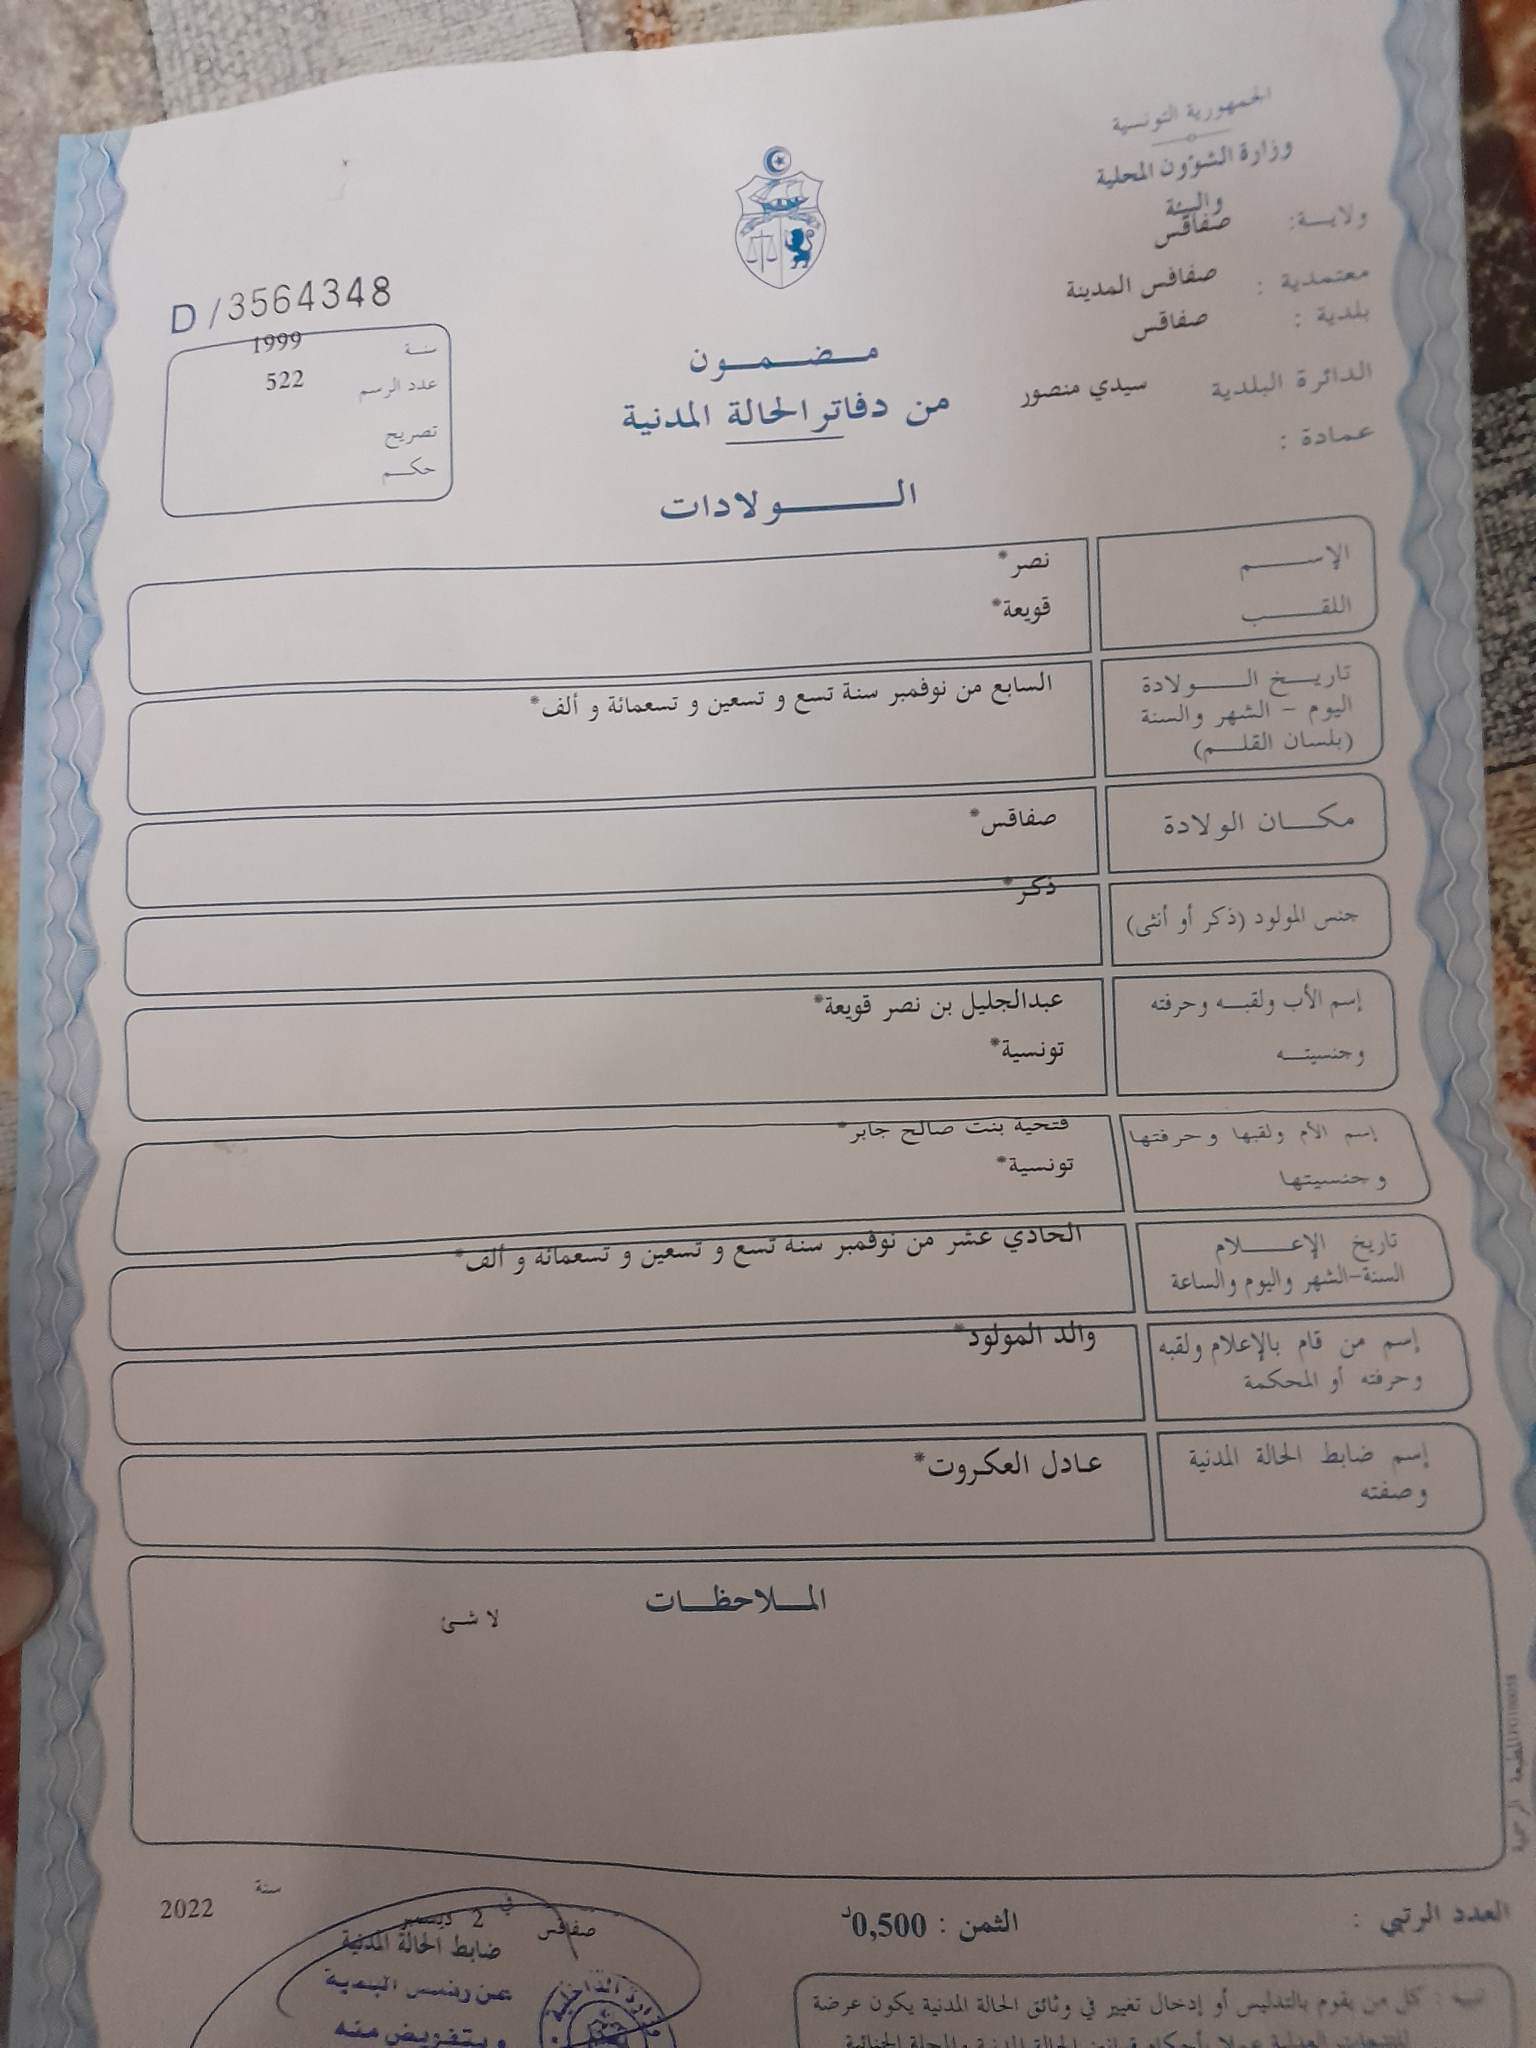 الجمهورية التونسية
وزارة الشؤون المحلية
والبيئة
ولايـــة: صفاقس
معتمدية : صفاقس المدينة
بلدية : صفاقس
الدائرة البلدية سيدي منصور
عمادة :
مـضـمـون
من دفاتر الحالة المدنية
الـــولادات
D/3564348
سنة 1999
عدد الرسم 522
تصريح
حكـم
الإســـم نصر*
اللقـــب قويعة*
تاريـخ الـــولادة
اليوم – الشهر والسنة
(بلسان القلـم)
السابع من نوفمبر سنة تسع و تسعين و تسعمائة و ألف*
مكـــان الولادة صفاقس*
جنس المولود (ذكر أو أنثى) ذكر*
إسم الأب ولقبـه وحرفته عبدالجليل بن نصر قويعة*
وجنسيتـه تونسية*
إسم الأم ولقبها وحرفتها فتحية بنت صالح جابر*
وجنسيتها تونسية*
تاريخ الإعـــلام
السنة-الشهر واليوم والساعة
الحادي عشر من نوفمبر سنة تسع و تسعين و تسعمائة و ألف*
إسم من قام بالإعلام ولقبه
وحرفته أو المحكمة
والد المولود*
إسم ضابط الحالة المدنية
وصفته
عادل العكروت*
المـــلاحظـــات
لا شئ
العدد الرتبي :
الثمن : 0,500د
صفاقس في 2 ديسمبر سنة 2022
ضابط الحالة المدنية
عن رئيس البلدية
وبتفويض منه
وزارة الداخلية
تنبيه : كل من يقوم بالتدليس أو إدخال تغيير في وثائق الحالة المدنية يكون عرضة